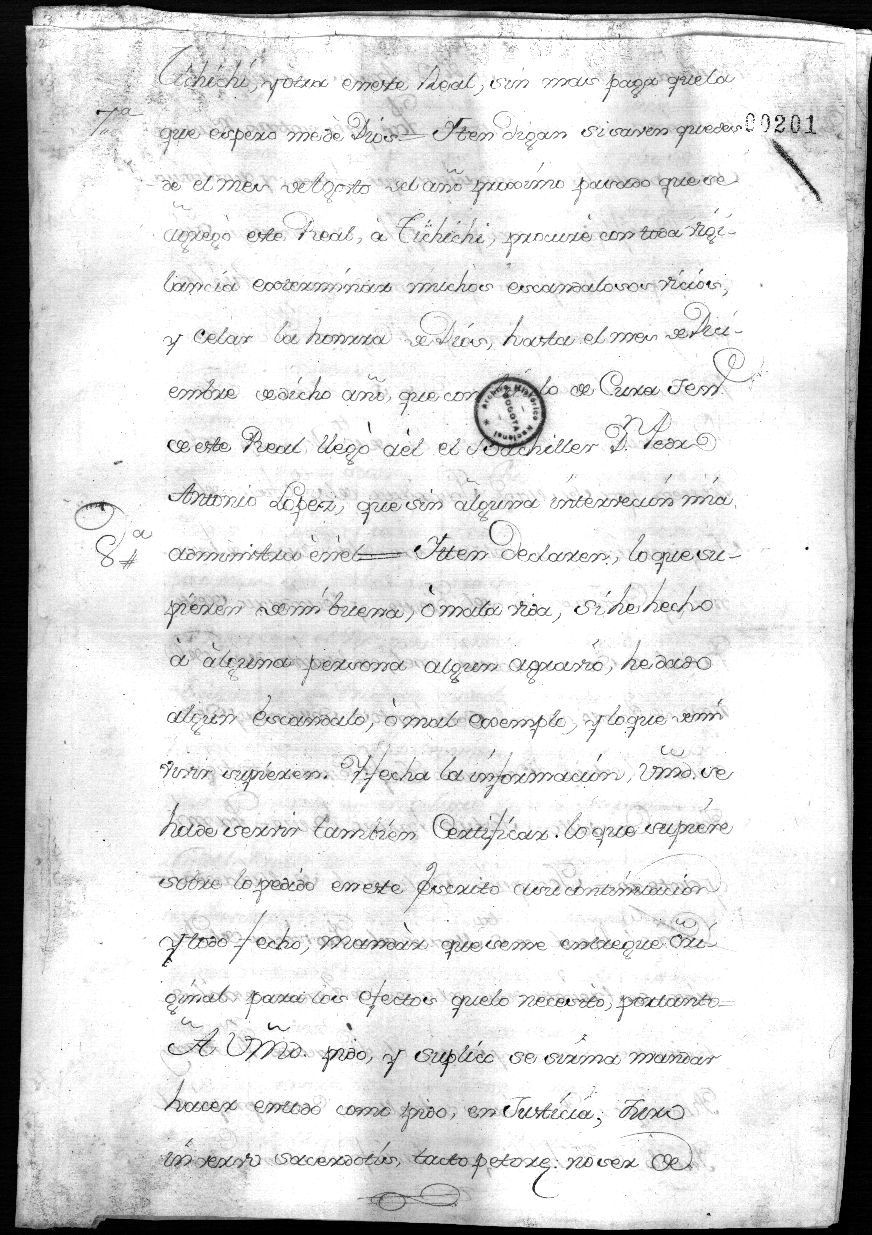 Tichichí, y otra en este Real, sin mas paga que la
7ª que espero me dé Dios — Yten digan si saven que des 00201
de el mes de Agosto del año proximo pasado que se
agregó este Real, à Tichichi, procuré con toda vigi-
lancia exterminar muchos escandalosos vicios,
y celar la honrra de Dios, hasta el mes de Dici-
embre de dicho año, que con lo de Cura Ten.e
de este Real llegó à èl el Bachiller D.n Pedro
Antonio Lopez, que sin alguna intervecion mia
8ª administra èn èl — Itten declaren, lo que su-
pieren de mi buena, ò mala vida, si he hecho
à alguna persona algun agravio, he dado
algun escandalo, ò mal exemplo, y lo que de mi
vivir supieren. Y fecha la informacion, Vmd. se
ha de servir tambien Certificar lo que supiere
sobre lo pedido en este Escrito a su continuacion
y todo fecho, mandar que se me entregue Ori-
ginal para los efectos que lo necesito, por tanto
A Vmd. pido, y suplico se sirva mandar
hacer en todo como pido, en Justicia, Juro
in vervo sacerdotis, tacto petore, no ser de
Archivo Histórico Nacional
BOGOTA